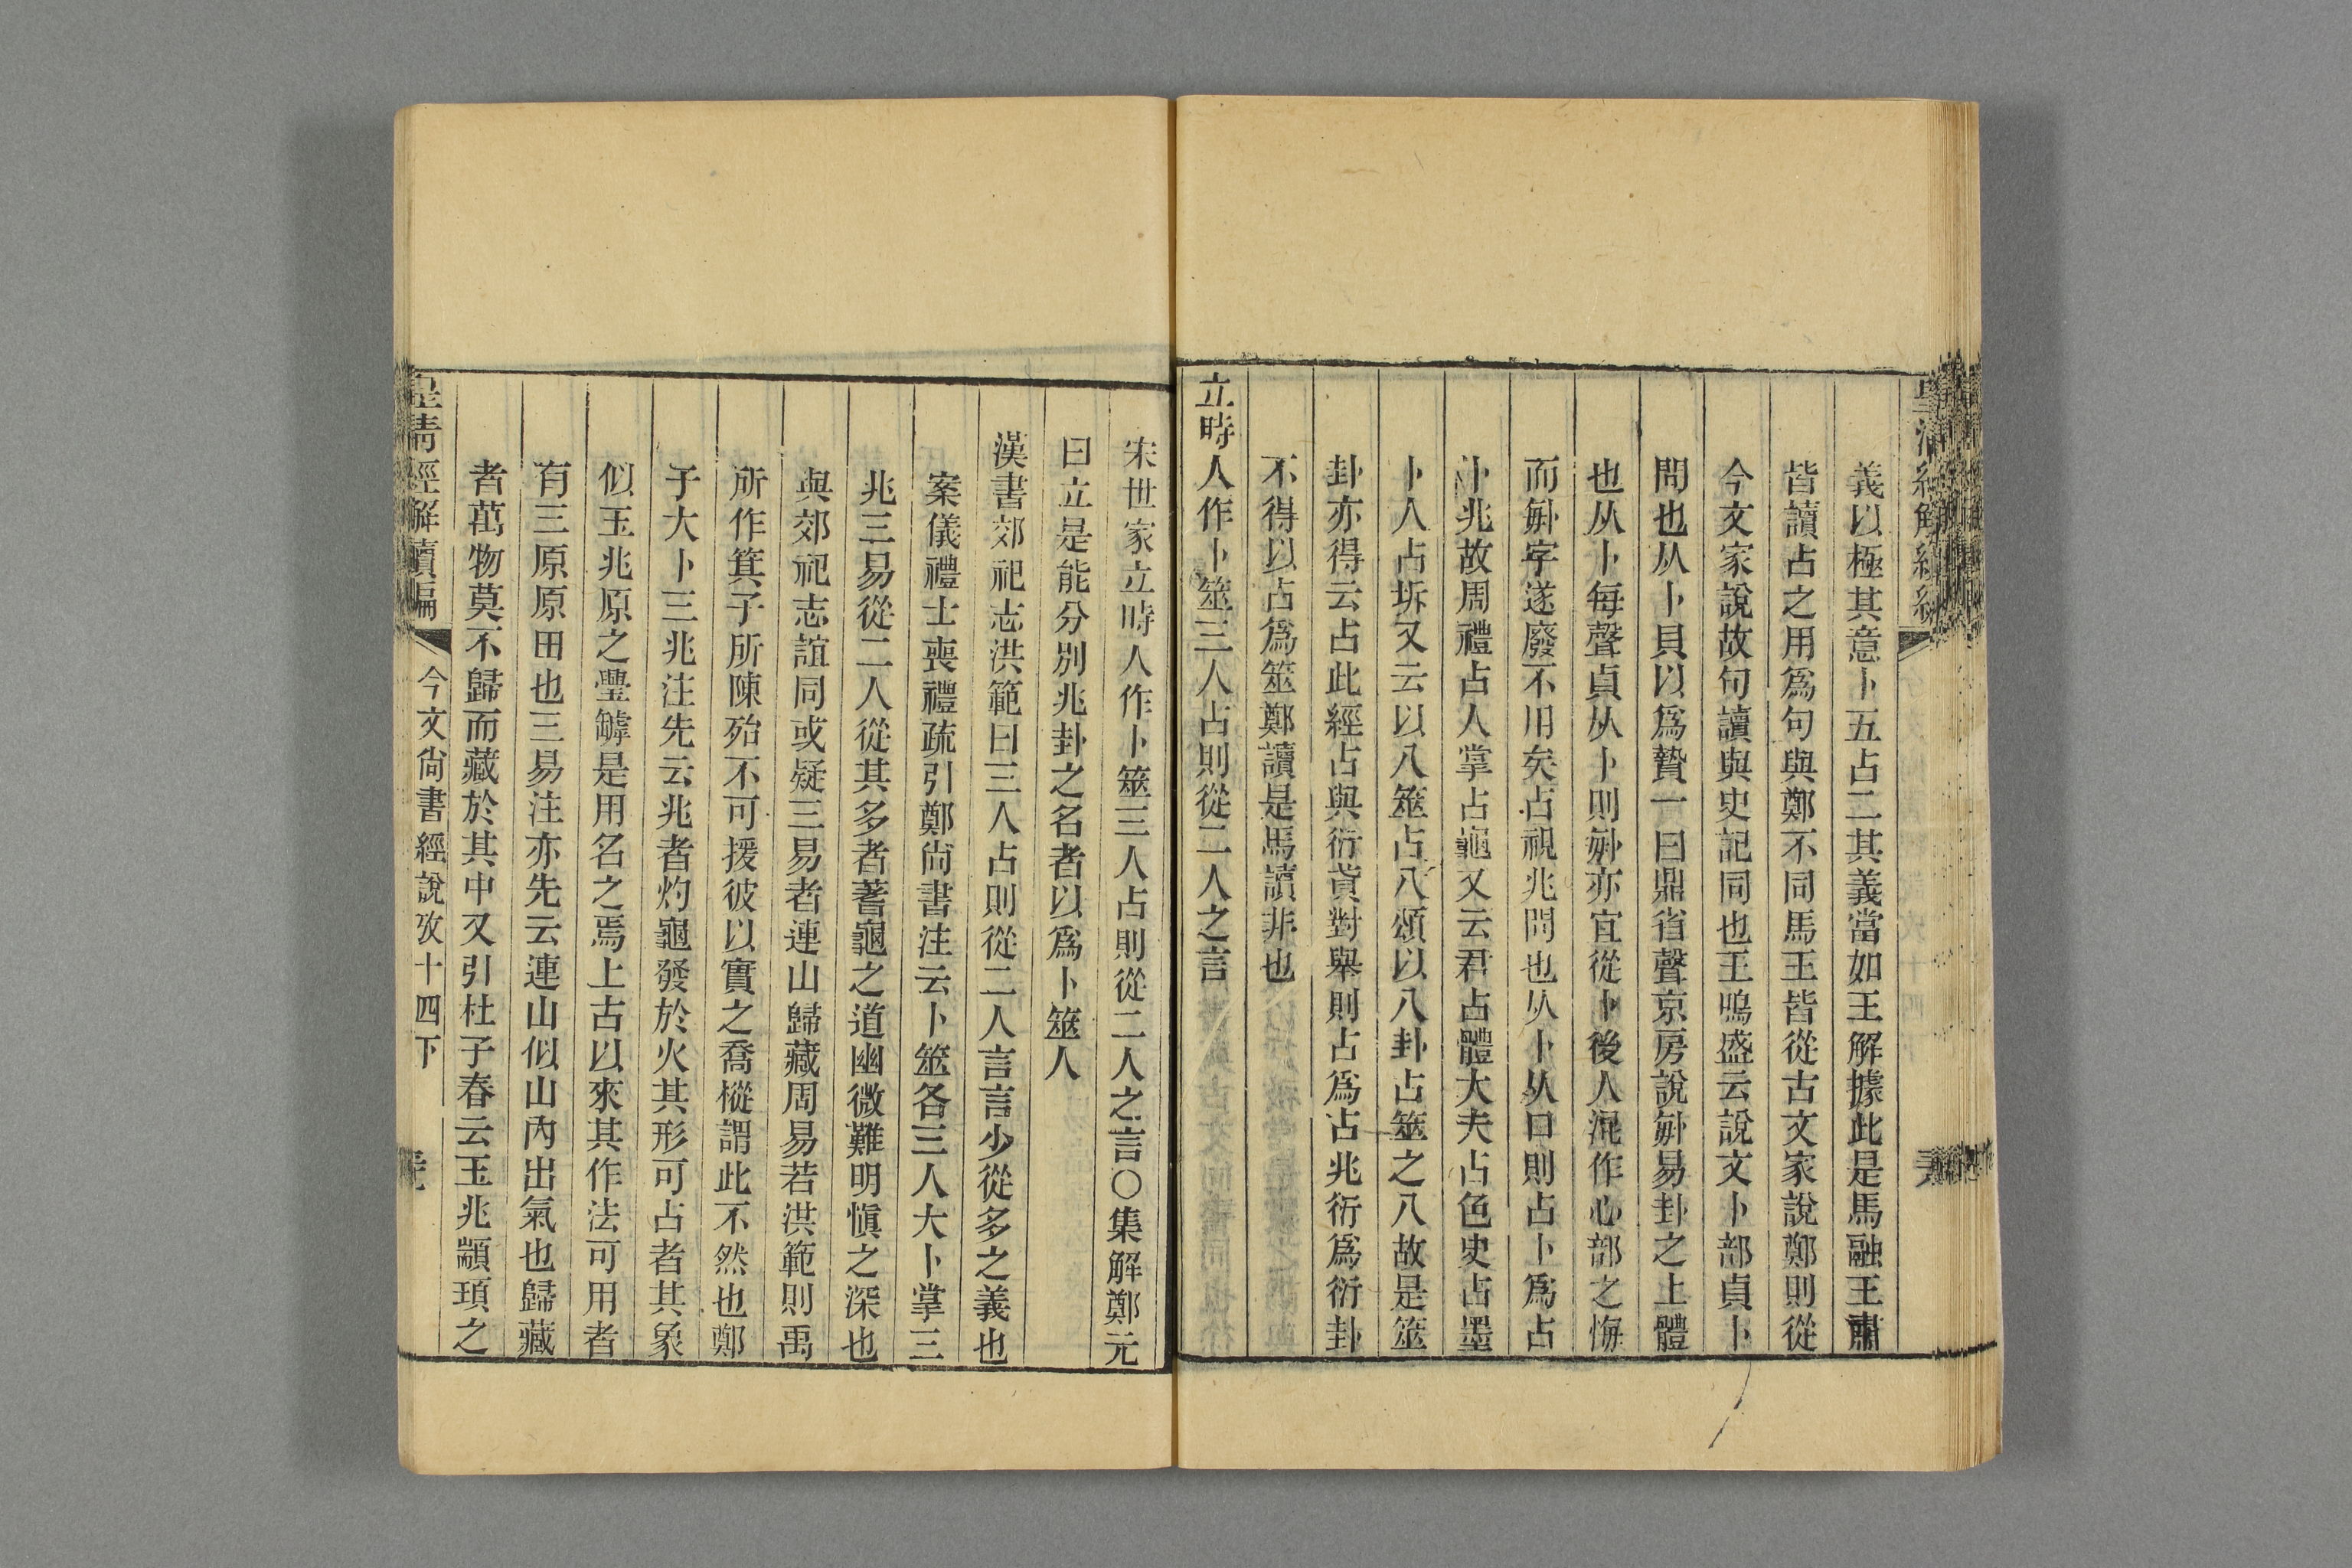 義以極其意卜五占二其義當如王解據此是馬融王肅
皆讀占之用爲句與鄭不同馬王皆從古文家說鄭則從
今文家說故句讀與史記同也王鳴盛云說文卜部貞卜
問也从卜貝以爲贄一曰鼎省聲京房說𠧩易卦之上體
也从卜每聲貞从卜則𠧩亦宜從卜後人混作心部之悔
而𠧩字遂廢不用矣占視兆問也从卜从口則占卜爲占
卟兆故周禮占人掌占龜又云君占體大夫占色史占墨
卜人占坼又云以八簭占八頌以八卦占簭之八故是筮
卦亦得云占此經占與衍貣對舉則占爲占兆衍爲衍卦
不得以占爲筮鄭讀是馬讀非也
立時人作卜筮三人占則從二人之言
宋世家立時人作卜筮三人占則從二人之言○集解鄭元
曰立是能分別兆卦之名者以爲卜筮人
漢書郊祀志洪範曰三人占則從二人言言少從多之義也
案儀禮士喪禮疏引鄭尙書注云卜筮各三人大卜掌三
兆三易從二人從其多者蓍龜之道幽微難明愼之深也
與郊祀志誼同或疑三易者連山歸藏周易若洪範則禹
所作箕子所陳殆不可援彼以實之喬樅謂此不然也鄭
子大卜三兆注先云兆者灼龜發於火其形可占者其象
似玉兆原之璺罅是用名之焉上古以來其作法可用者
有三原原田也三易注亦先云連山似山內出氣也歸藏
者萬物莫不歸而藏於其中又引杜子春云玉兆顓頊之
皇清經解續編 今文尙書經說攷十四下